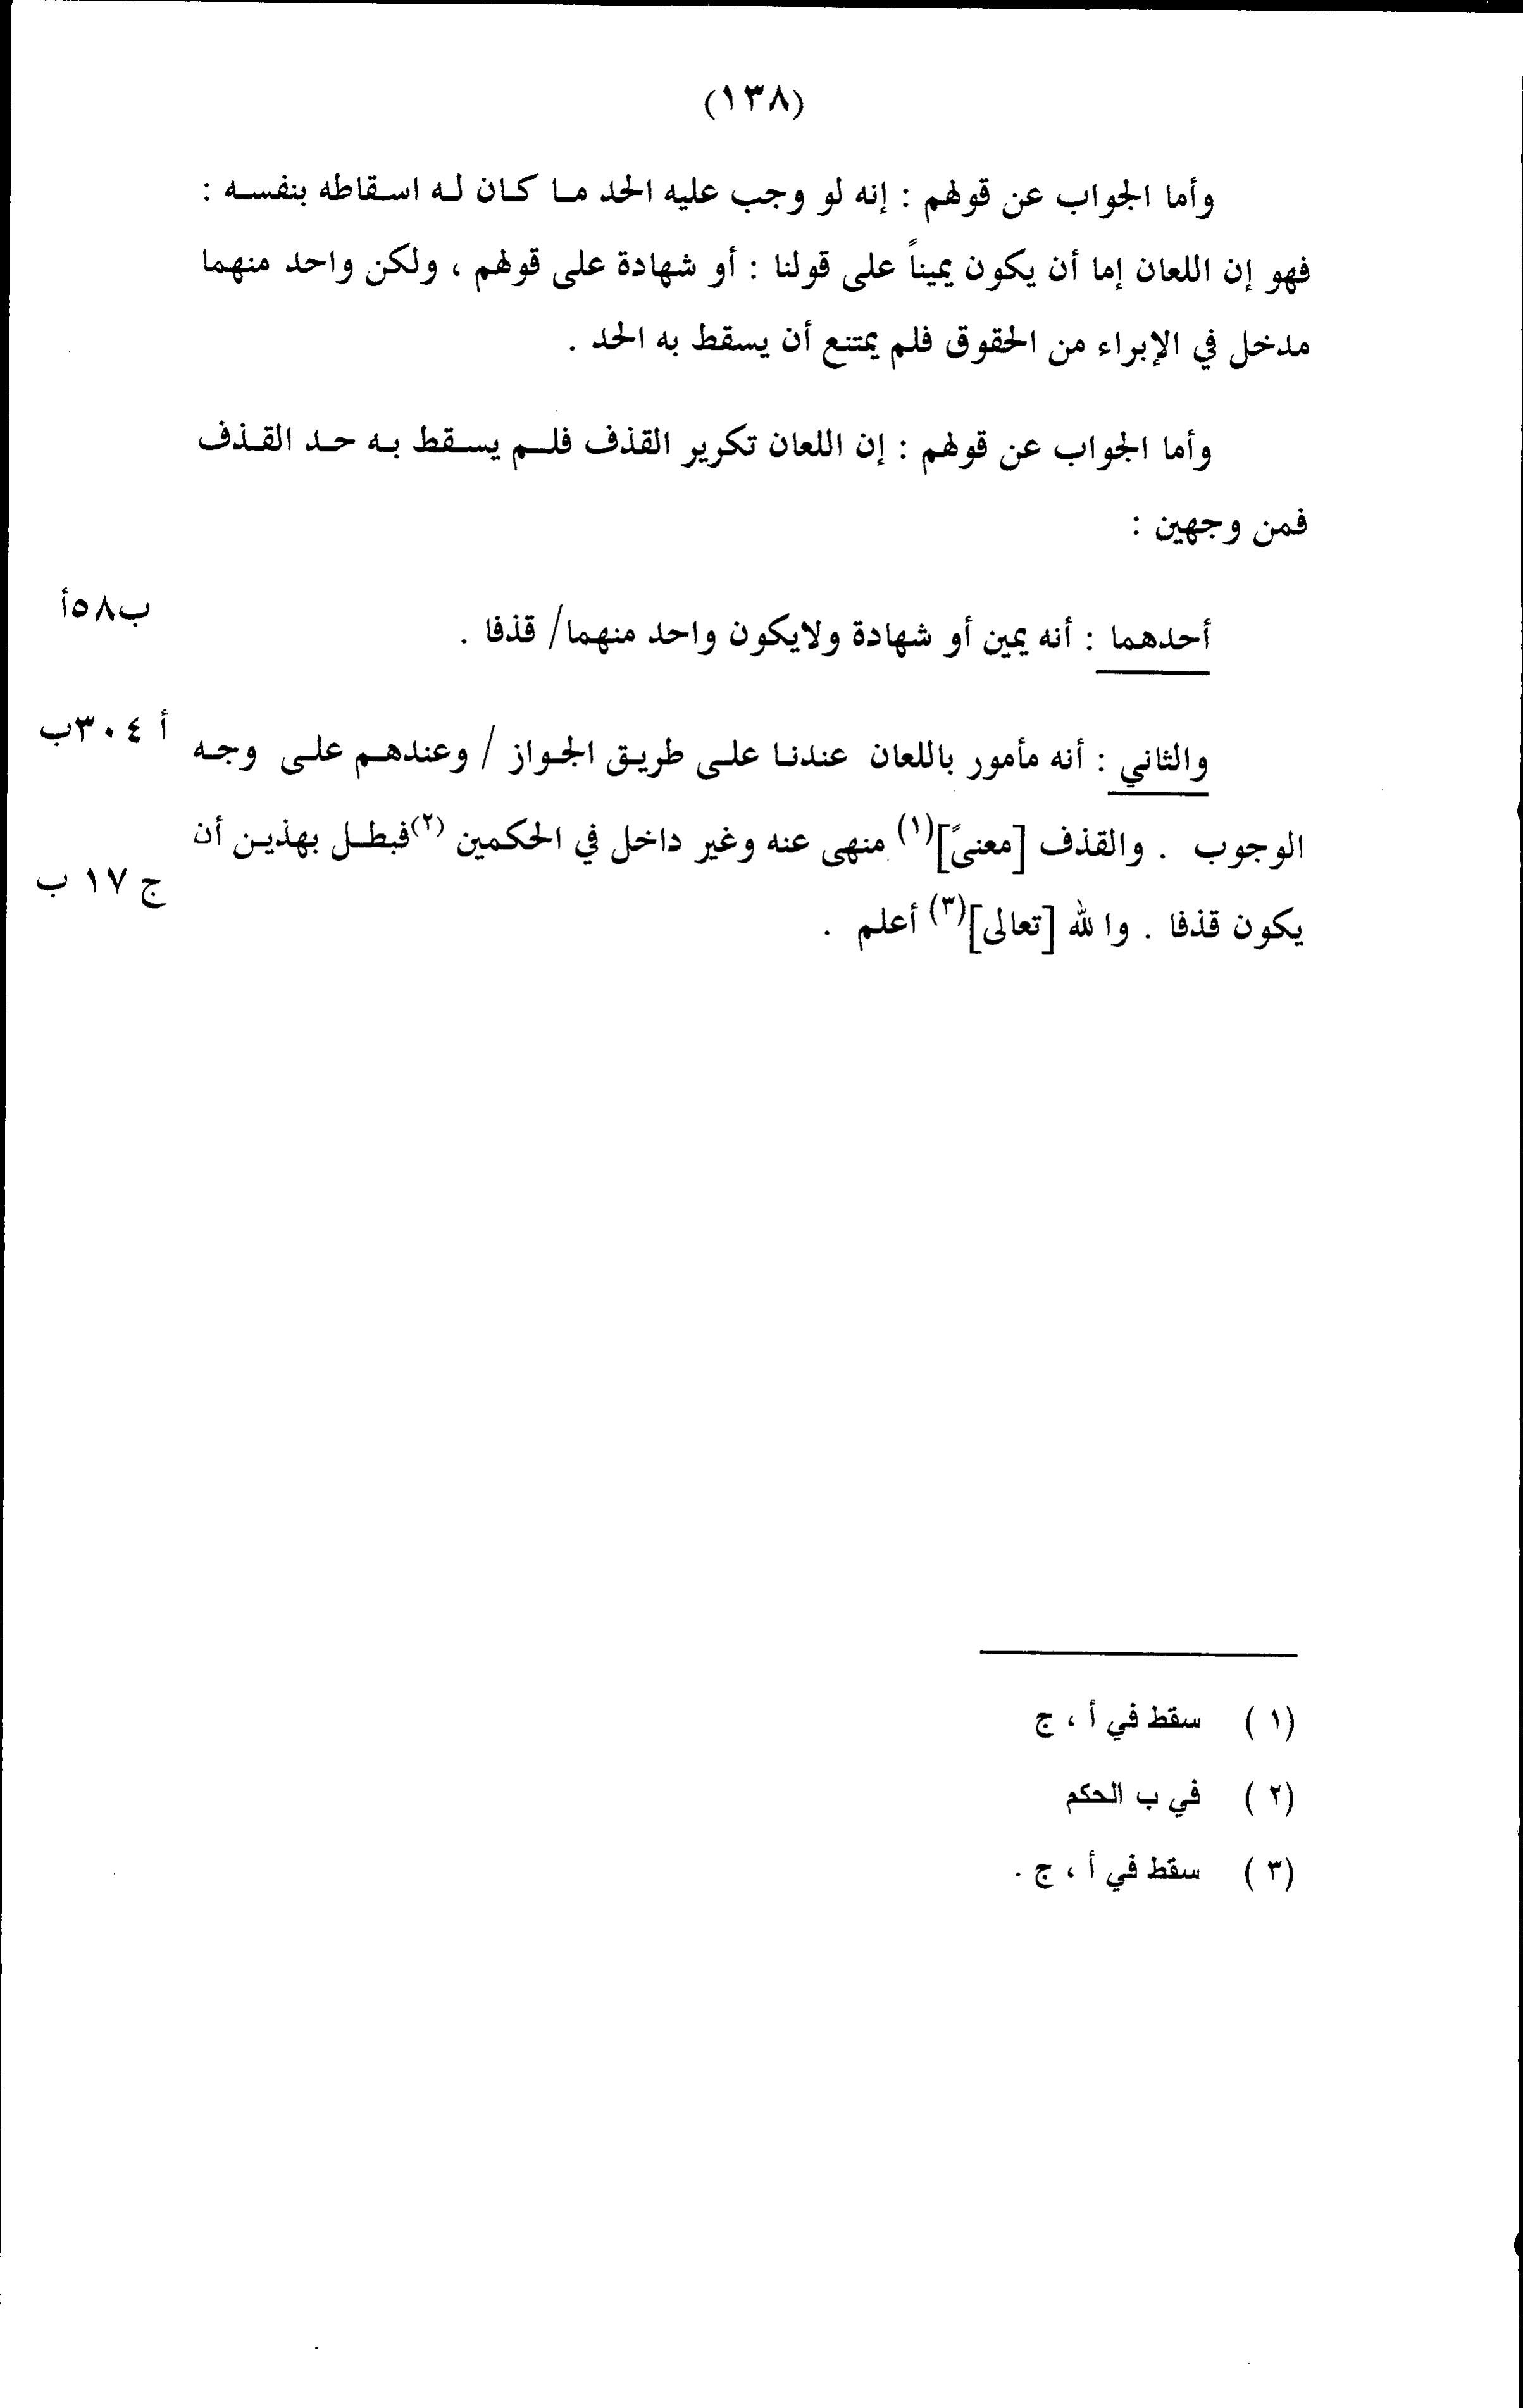 (١٣٨)
وأما الجواب عن قولهم : إنه لو وجب عليه الحد ما كان له اسقاطه بنفسه :
فهو إن اللعان إما أن يكون يميناً على قولنا : أو شهادة على قولهم ، ولكن واحد منهما
مدخل في الإبراء من الحقوق فلم يمتنع أن يسقط به الحد .
وأما الجواب عن قولهم : إن اللعان تكرير القذف فلم يسقط به حد القذف
فمن وجهين :
أحدهما : أنه يمين أو شهادة ولايكون واحد منهما/ قذفا .
ب٥٨أ
والثاني : أنه مأمور باللعان عندنا على طريق الجواز / وعندهم على وجه
أ ٣٠٤ب
الوجوب . والقذف [معنىً](١) منهى عنه وغير داخل في الحكمين (٢)فبطل بهذين أن
ج ١٧ ب
يكون قذفا . والله [تعالى](٣) أعلم .
(١) سقط في أ ، ج
(٢) في ب الحكم
(٣) سقط في أ ، ج .